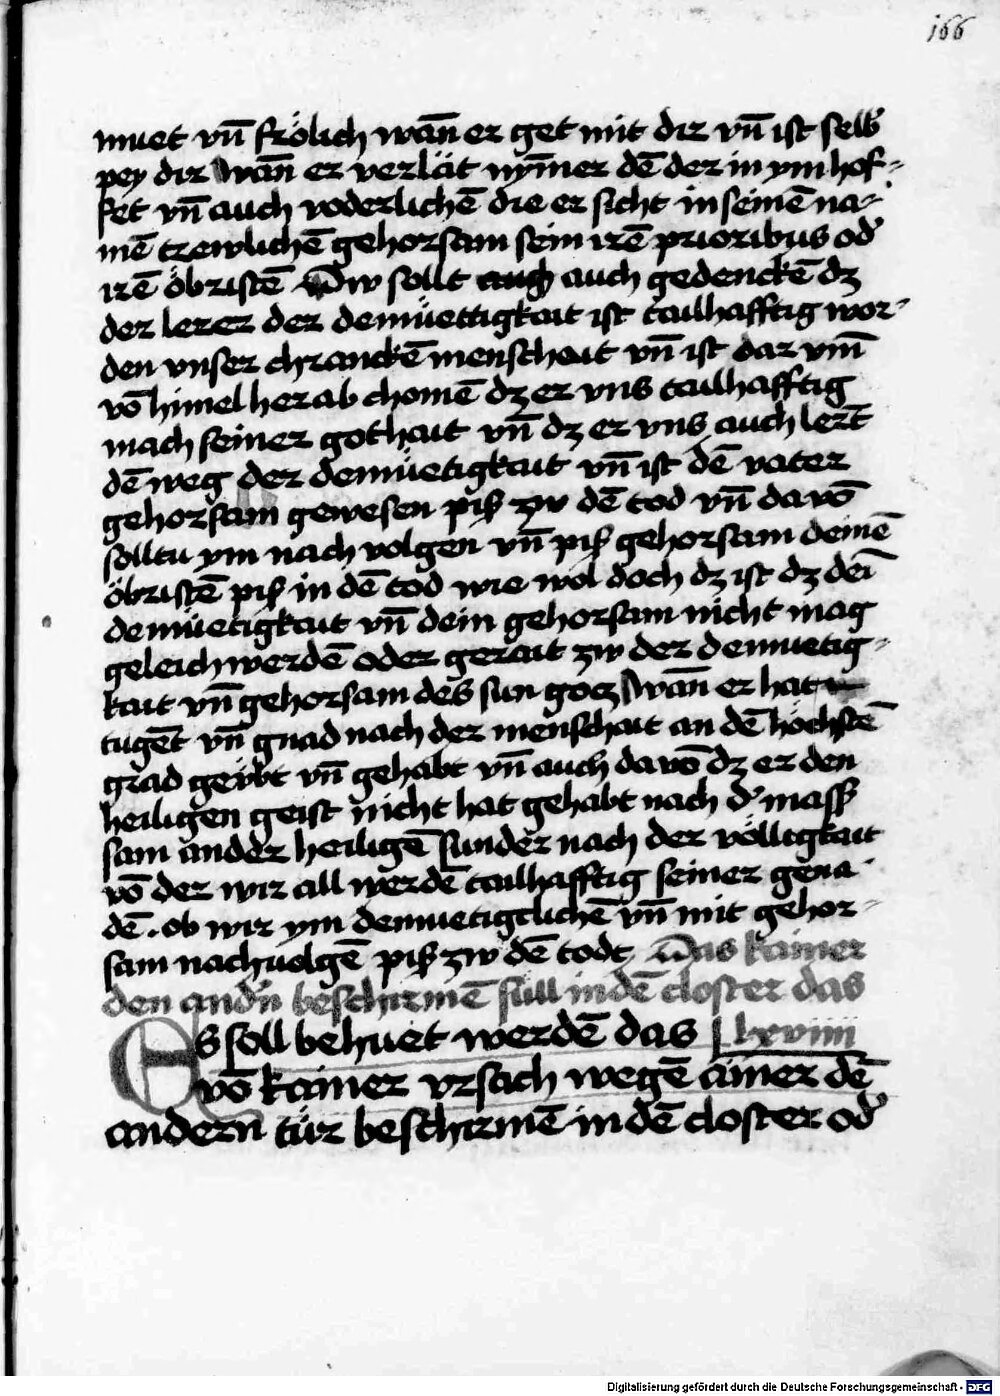 166
muet vn̄ frölich wān er get mit dir vn̄ ist selb
pey dir wān er verlät nȳmer dē der in ym hof-
fet vn̄ auch voderlichē die er sicht in seinē na-
mē trewlichē gehorsam sein irē prioribus od'
irē öbristē Dw sollt auch gedenckē dz
der lerer der demüettigkait ist tailhafftig wor-
den vnser chranckē menschait vn̄ ist dar vm̄
vō himel herab chomē dz er vns tailhafftig
mach seiner gothait vn̄ dz er vns auch lert
dē weg der demüetigkait vn̄ ist dē vater
gehorsam gewesen piß zw dē tod vn̄ da vō
solltu ym nach volgen vn̄ piß gehorsam deinē
öbristē piß in dē tod wie wol doch dz ist dz deī
demüetigkait vn̄ dein gehorsam nicht mag
geleich werdē oder gerait zw der demuetig-
kait vn̄ gehorsam des sun gotz wān er hat
tugēt vn̄ gnad nach der menschait an dē höchstē
grad geübt vn̄ gehabt vn̄ auch da vō dz er den
heiligen geist nicht hat gehabt nach d' mass
sam ander heiligē sunder nach der völligkait
vō der wir all werdē tailhafftig seiner gena
dē . ob wir ym demuetigclichē vn̄ mit gehor-
sam nachuolgē piß zw dē todt Das kainer
den and'n beschirmē sull in dē closter das
Es soll behuet werdē das lxviiii
vō kainer vrsach wegē ainer dē
andern tür beschirmē in dē closter od'
Digitalisierung gefördert durch die Deutsche Forschungsgemeinschaft - DFG